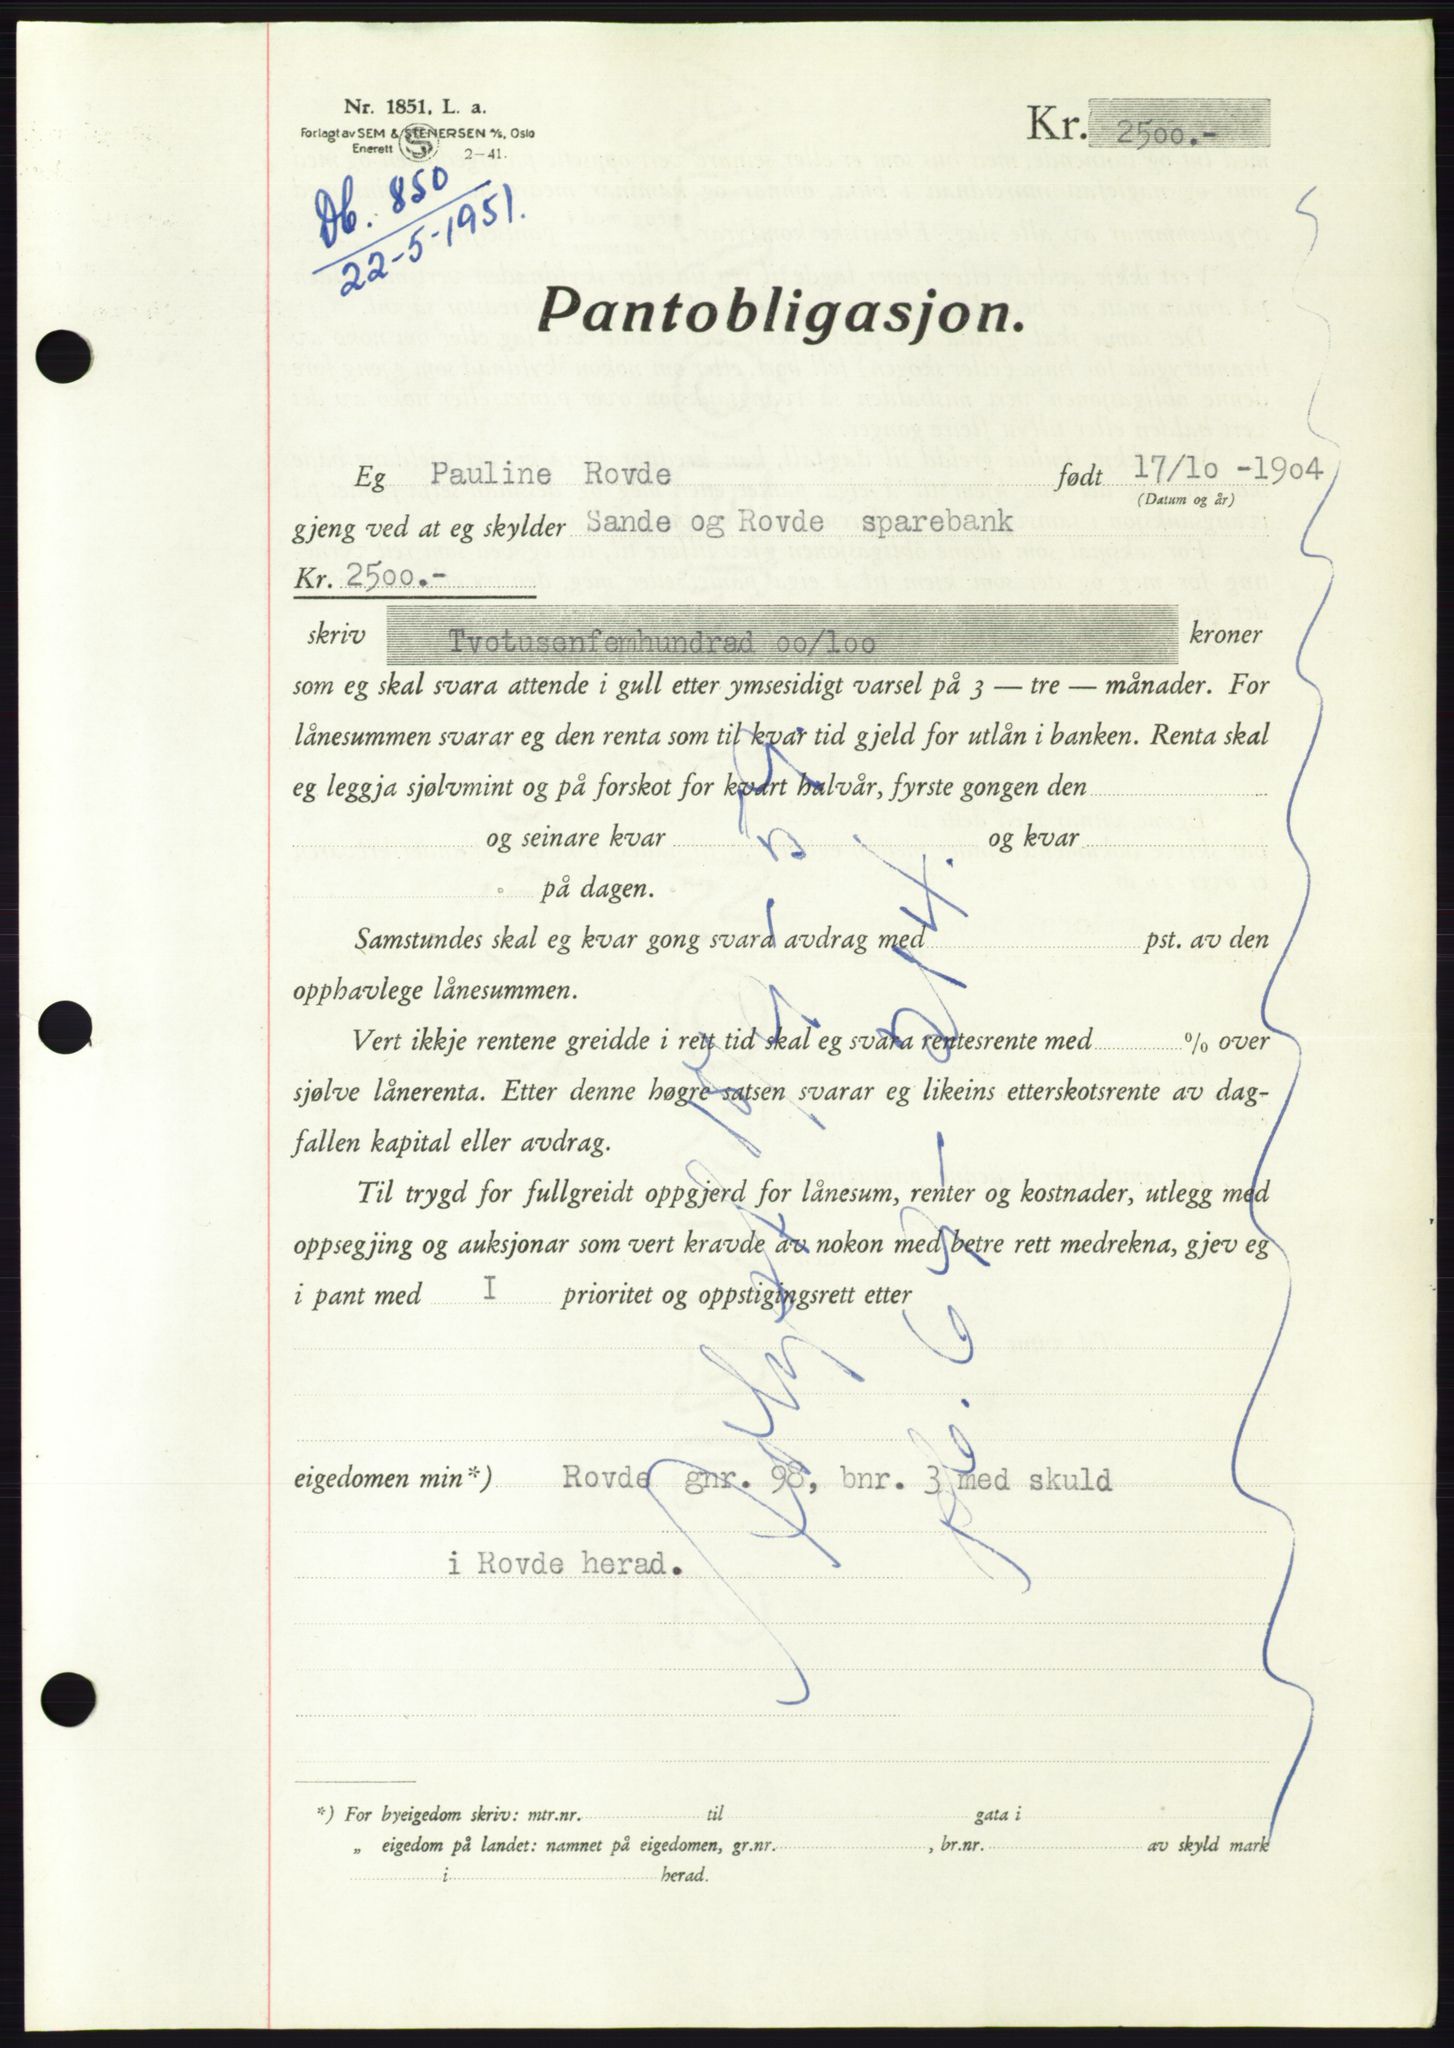 Nr. 1851, L. a.
Forlagt av SEM & STENERSEN A/S, Oslo
Enerett 2-41.
Kr. 2500.-
Db. 850
22-5-1951.
Pantobligasjon.
Eg Pauline Rovde født 17/10 -1904
(Datum og år)
gjeng ved at eg skylder Sande og Rovde sparebank
Kr. 2500.-
skriv Tvotusenfemhundrad oo/loo kroner
som eg skal svara attende i gull etter ymsesidigt varsel på 3 — tre — månader. For
lånesummen svarar eg den renta som til kvar tid gjeld for utlån i banken. Renta skal
eg leggja sjølvmint og på forskot for kvart halvår, fyrste gongen den
og seinare kvar og kvar
på dagen.
Samstundes skal eg kvar gong svara avdrag med pst. av den
opphavlege lånesummen.
Vert ikkje rentene greidde i rett tid skal eg svara rentesrente med % over
sjølve lånerenta. Etter denne høgre satsen svarar eg likeins etterskotsrente av dag-
fallen kapital eller avdrag.
Til trygd for fullgreidt oppgjerd for lånesum, renter og kostnader, utlegg med
oppsegjing og auksjonar som vert kravde av nokon med betre rett medrekna, gjev eg
i pant med I prioritet og oppstigingsrett etter
eigedomen min*) Rovde gnr. 98, bnr. 3 med skuld
i Rovde herad.
*) For byeigedom skriv: mtr.nr. til gata i
„ eigedom på landet: namnet på eigedomen, gr.nr. , br.nr. av skyld mark
i herad.